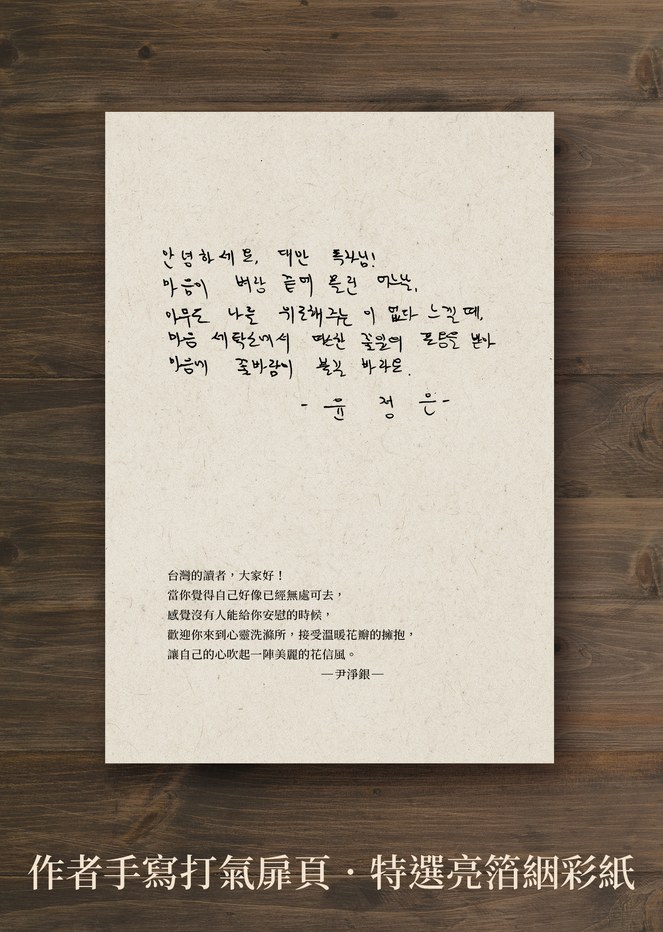 안녕하세요, 대만 독자님!
마음이 벼랑 끝에 몰린 어느날,
아무도 나를 위로해주는 이 없다 느낄 때,
마음 세탁소에서 따뜻한 꽃잎의 포옹을 받아
마음에 꽃바람이 불길 바라요.
- 윤 정 은 -
台灣的讀者，大家好！
當你覺得自己好像已經無處可去，
感覺沒有人能給你安慰的時候，
歡迎你來到心靈洗滌所，接受溫暖花瓣的擁抱，
讓自己的心吹起一陣美麗的花信風。
—尹淨銀—
作者手寫打氣扉頁・特選亮箔絪彩紙